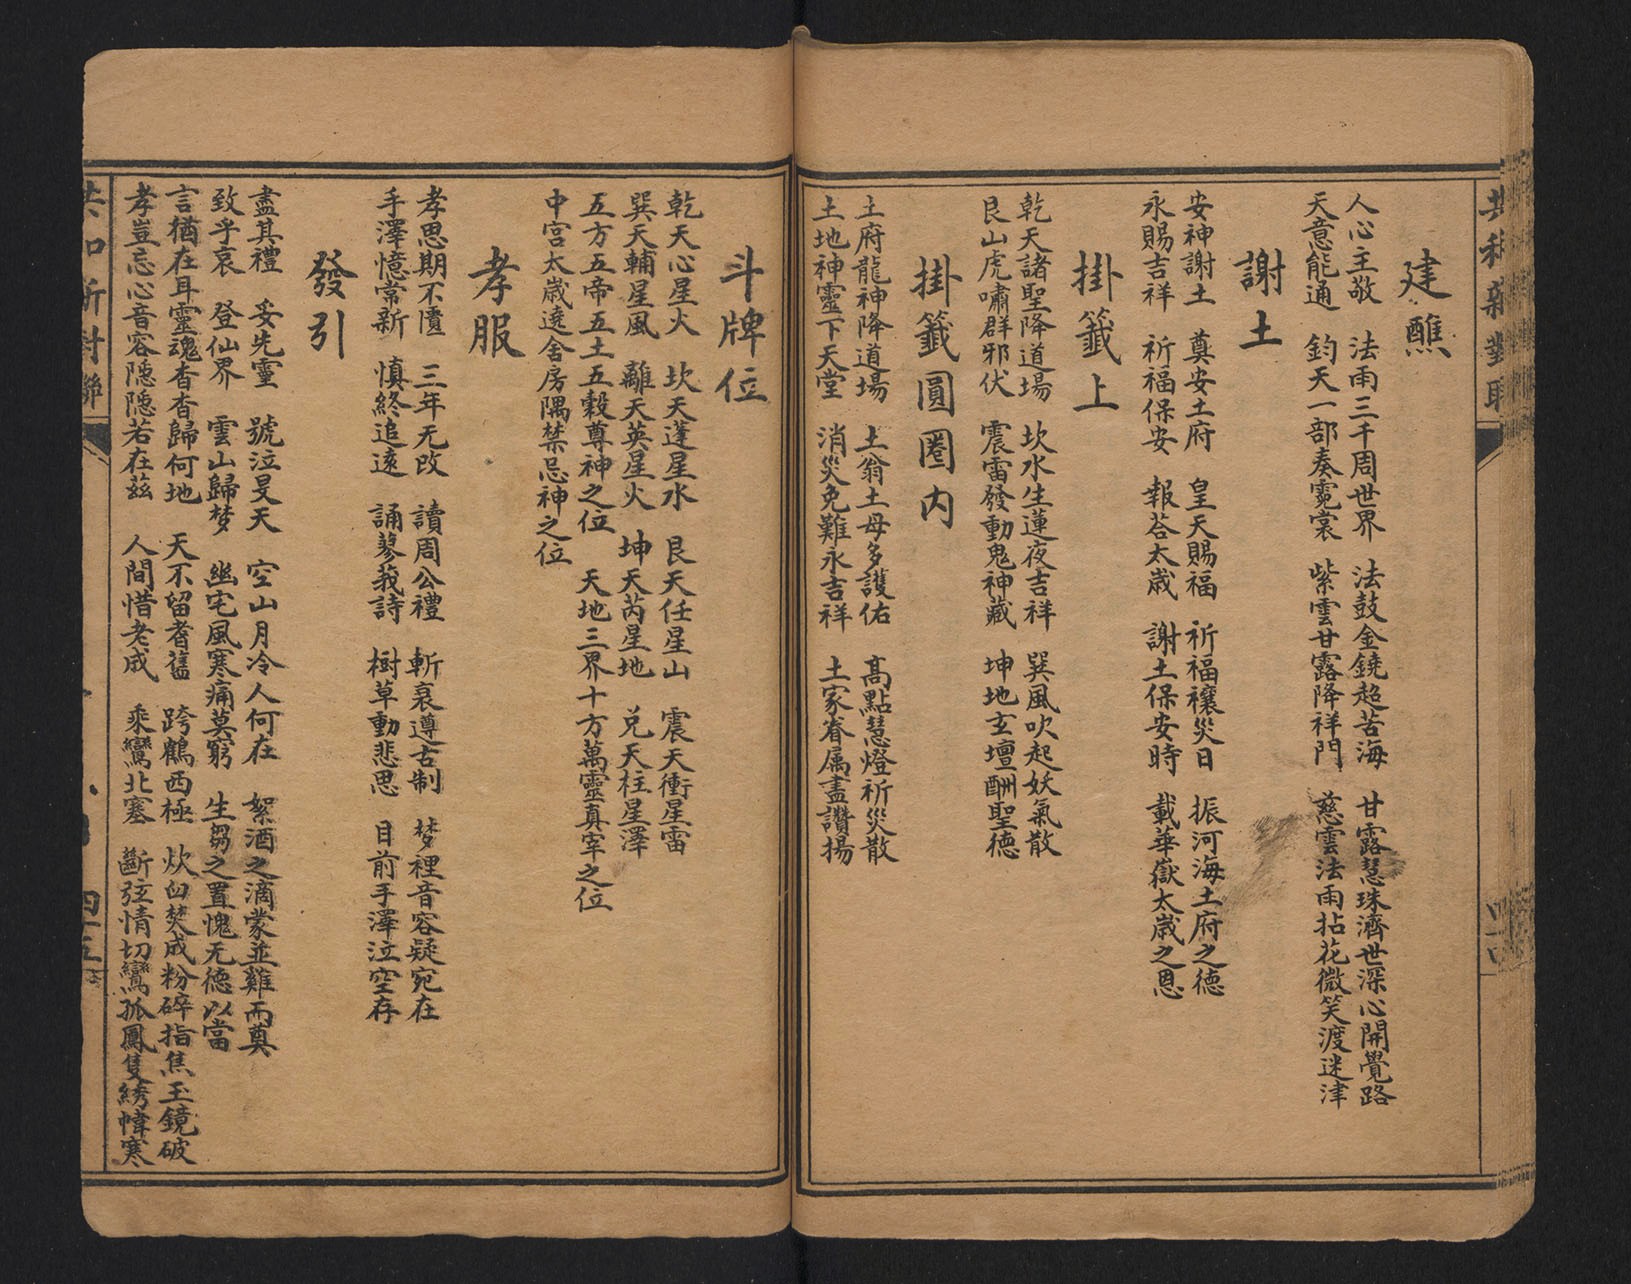 建醮
人心主敬　法雨三千周世界　法鼓金鐃超苦海　甘露慧珠濟世深心開覺路
天意能通　鈞天一部奏霓裳　紫雲甘露降祥門　慈雲法雨拈花微笑渡迷津
謝土
安神謝土　奠安土府　皇天賜福　祈福禳災日　振河海土府之德
永賜吉祥　祈福保安　報荅太歲　謝土保安時　載華嶽太歲之恩
掛籤上
乾天諸聖降道場　坎水生蓮夜吉祥　巽風吹起妖氣散
艮山虎嘯群邪伏　震雷發動鬼神藏　坤地玄壇酬聖德
掛籤圓圈内
土府龍神降道場　土翁土母多護佑　高點慧燈祈災散
土地神靈下天堂　消災免難永吉祥　土家眷属盡讚揚
斗牌位
乾天心星火　坎天蓬星水　艮天任星山　震天衝星雷
巽天輔星風　離天英星火　坤天芮星地　兌天柱星澤
五方五帝五土五穀尊神之位　天地三界十方萬靈真宰之位
中宮太歲遶舍房隅禁忌神之位
孝服
孝思期不匱　三年无改　讀周公禮　斬衰遵古制　梦裡音容疑宛在
手澤憶常新　慎終追遠　誦蓼莪詩　樹草動悲思　目前手澤泣空存
發引
盡其禮　妥先靈　號泣旻天　空山月冷人何在　絮酒之滴蒙並雞而奠
致乎哀　登仙界　雲山歸梦　幽宅風寒痛莫窮　生芻之置愧无德以當
言猶在耳靈魂杳杳歸何地　天不留耆舊　跨鶴西極　炊臼焚成粉碎指焦玉鏡破
孝豈忘心音容隠隠若在茲　人間惜老成　乘鸞北塞　斷弦情切鸞孤鳳隻綉幃寒
共和新對聯
四五